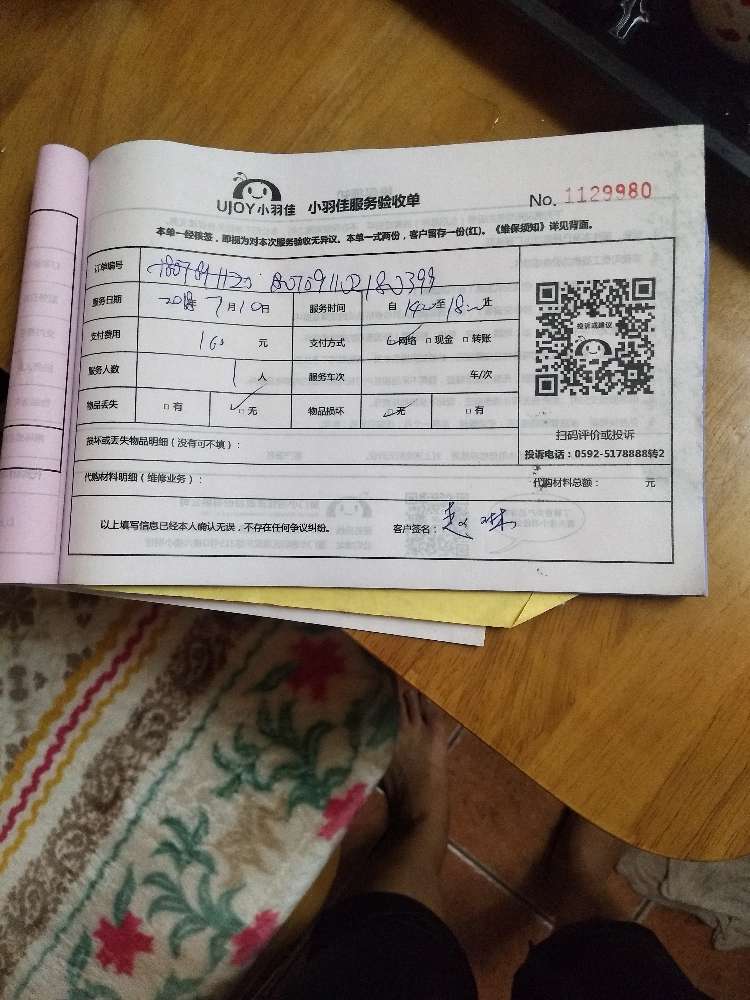 UJOY小羽佳 小羽佳服务验收单 No. 1129980
本单一经核签，即视为对本次服务验收无异议。本单一式两份，客户留存一份(红)。《维保须知》详见背面。
订单编号 18070911021800399
服务日期 2018年7月10日 服务时间 自1400至1800止
支付费用 160 元 支付方式 网络 现金 转账
服务人数 1人 服务车次 车/次
物品丢失 有 无 物品损坏 无 有
投诉或建议
扫码评价或投诉
投诉电话：0592-5178888转2
损坏或丢失物品明细（没有可不填）：
代购材料明细（维修业务）： 代购材料总额： 元
以上填写信息已经本人确认无误，不存在任何争议纠纷。 客户签名：